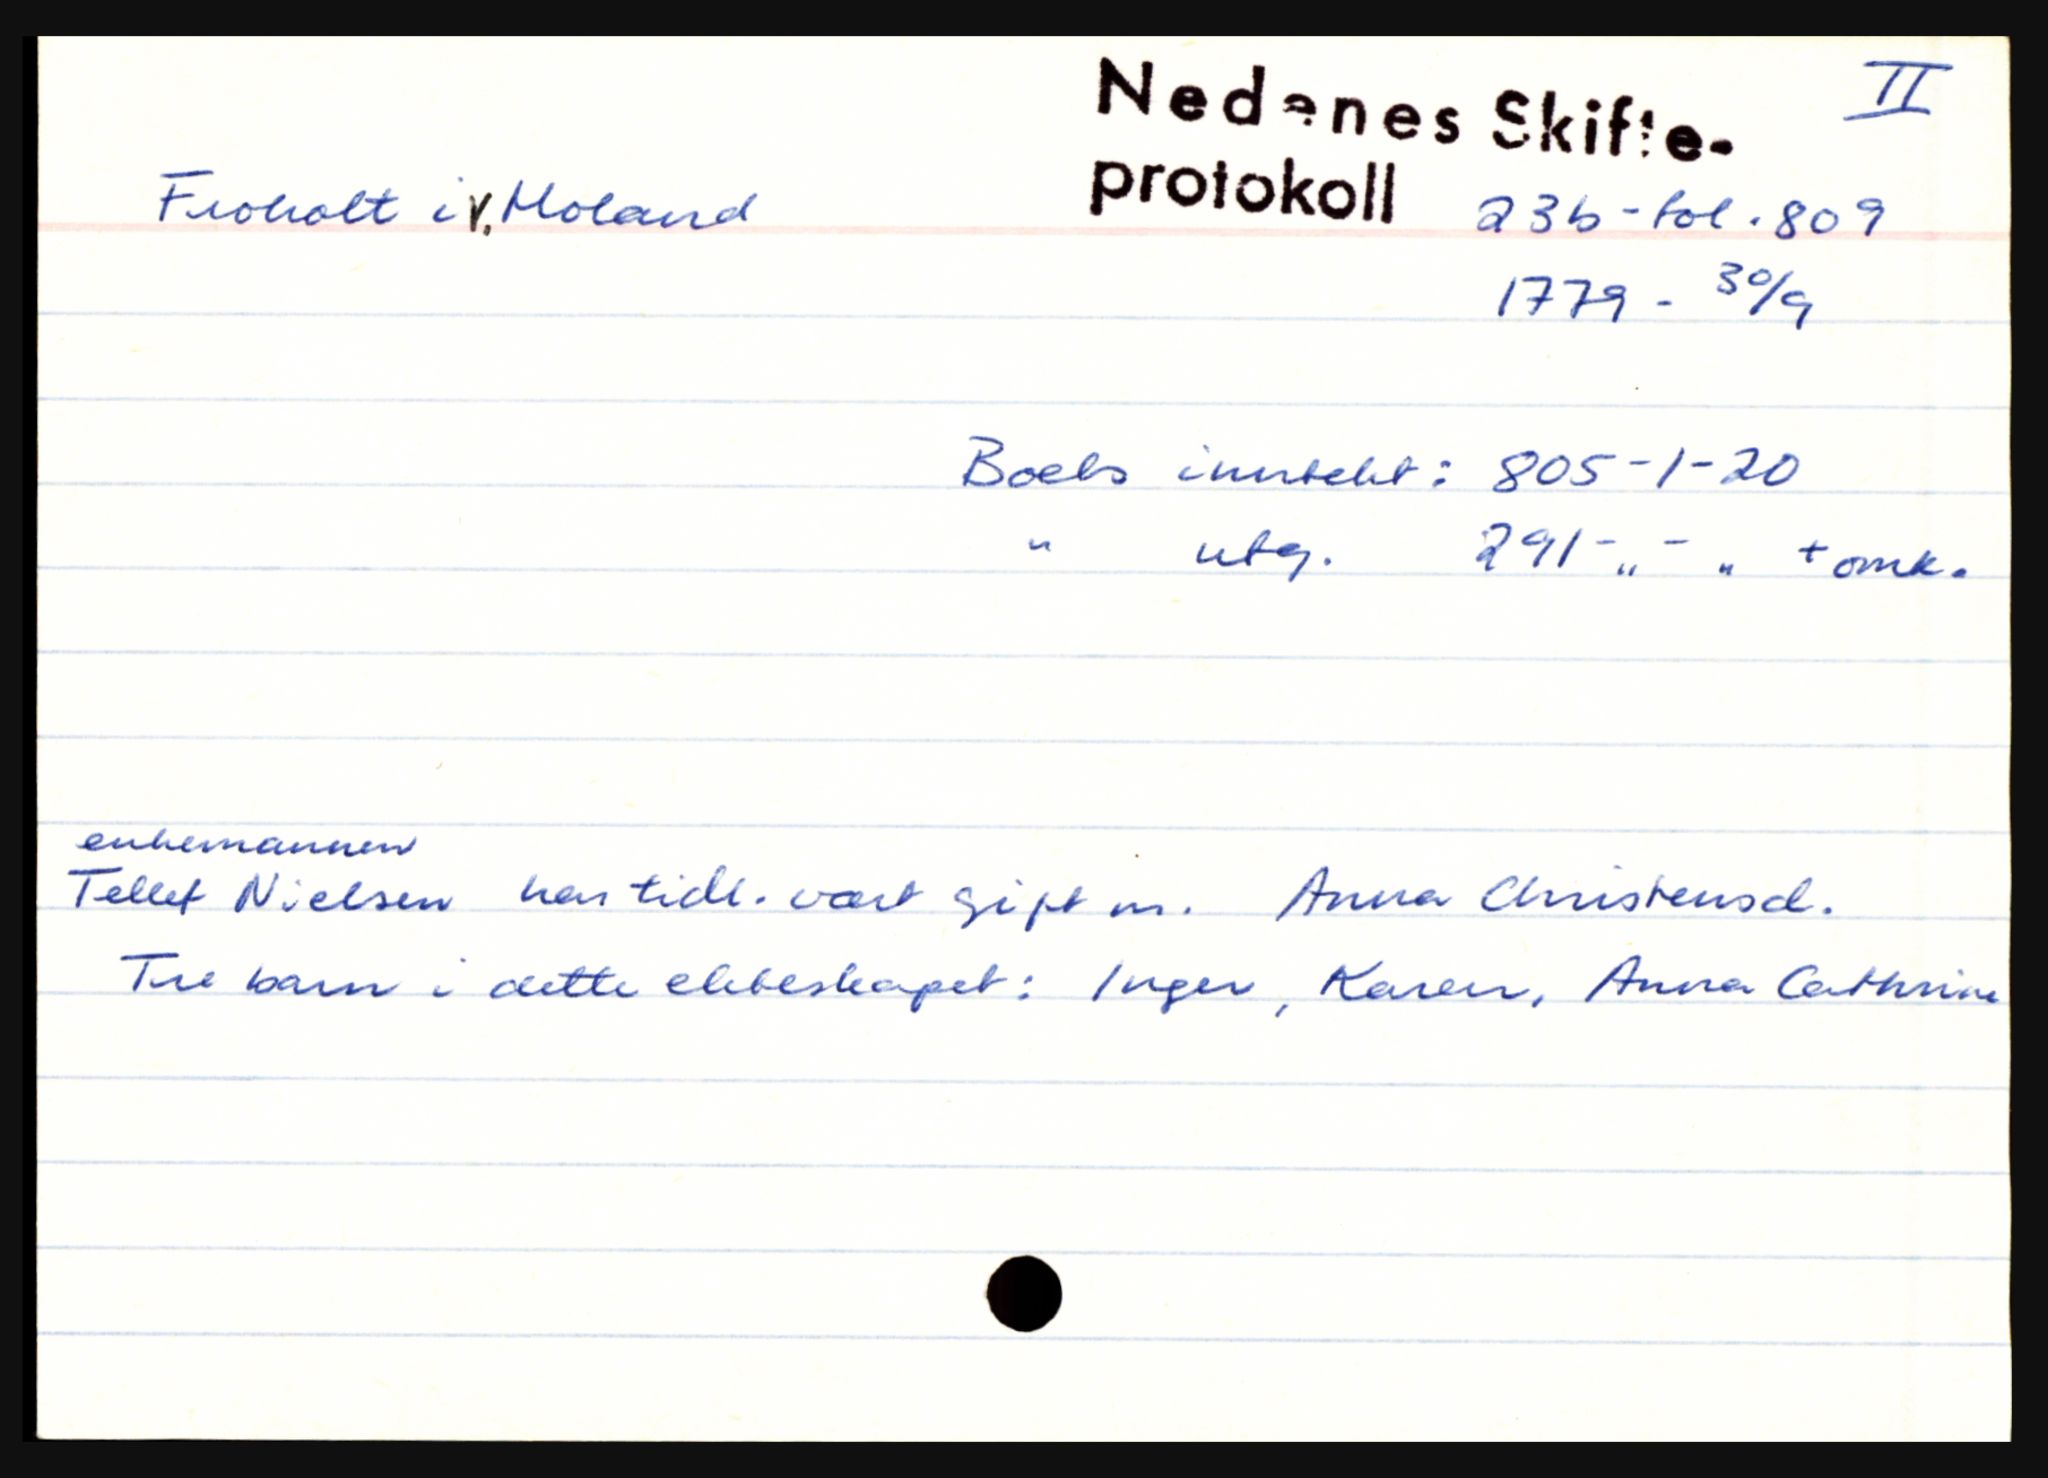 II
Nedenes Skifte-
protokoll
Froholt i V. Moland 23b - fol. 809
1779 - 30/9
Boets inntekt: 805-1-20
" utg. 291-"-" + omk.
enkemannen
Tellef Nielsen har tidl. vært gift m. Anna Christensd.
Tre barn i dette ekteskapet: Inger, Karen, Anna Cathrine